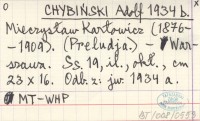 CHYBIŃSKI Adolf 1934 b.
Mieczysław Karłowicz (1876-
-1909). (Preludja.) - War-
szawa. Ss. 19, il., okł., cm
23 x 16. Odb. z: jw. 1934 a.
MT-WHP